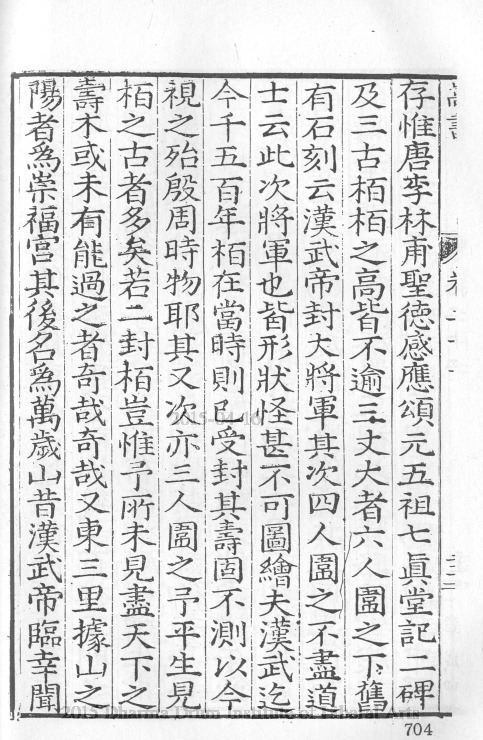 存惟唐李林甫聖德感應頌元五祖七眞堂記二碑
及三古栢栢之高皆不逾三丈大者六人圍之下舊
有石刻云漢武帝封大將軍其次四人圍之不盡道
士云此次將軍也皆形狀怪甚不可圖繪夫漢武迄
今千五百年栢在當時則已受封其壽固不測以今
視之殆殷周時物耶其又次亦三人圍之予平生見
栢之古者多矣若二封栢豈惟予所未見盡天下之
壽木或未有能過之者奇哉奇哉又東三里據山之
陽者爲崇福宮其後名爲萬歲山昔漢武帝臨幸聞
2015-04-16
2015 Dharma Drum Institute of Liberal Arts
704